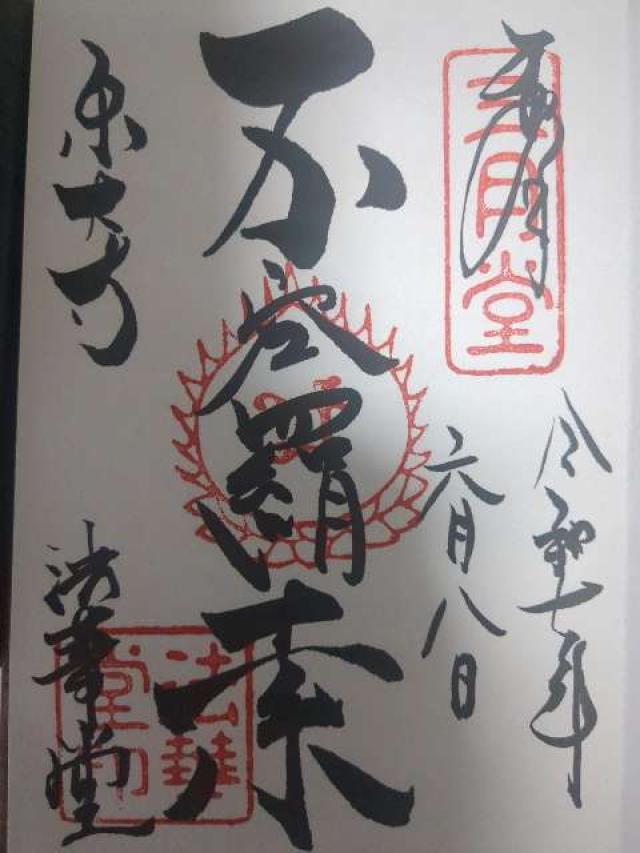 奉拝
三月堂
令和七年
六月八日
不空羂索
東大寺
法華堂
法華堂印